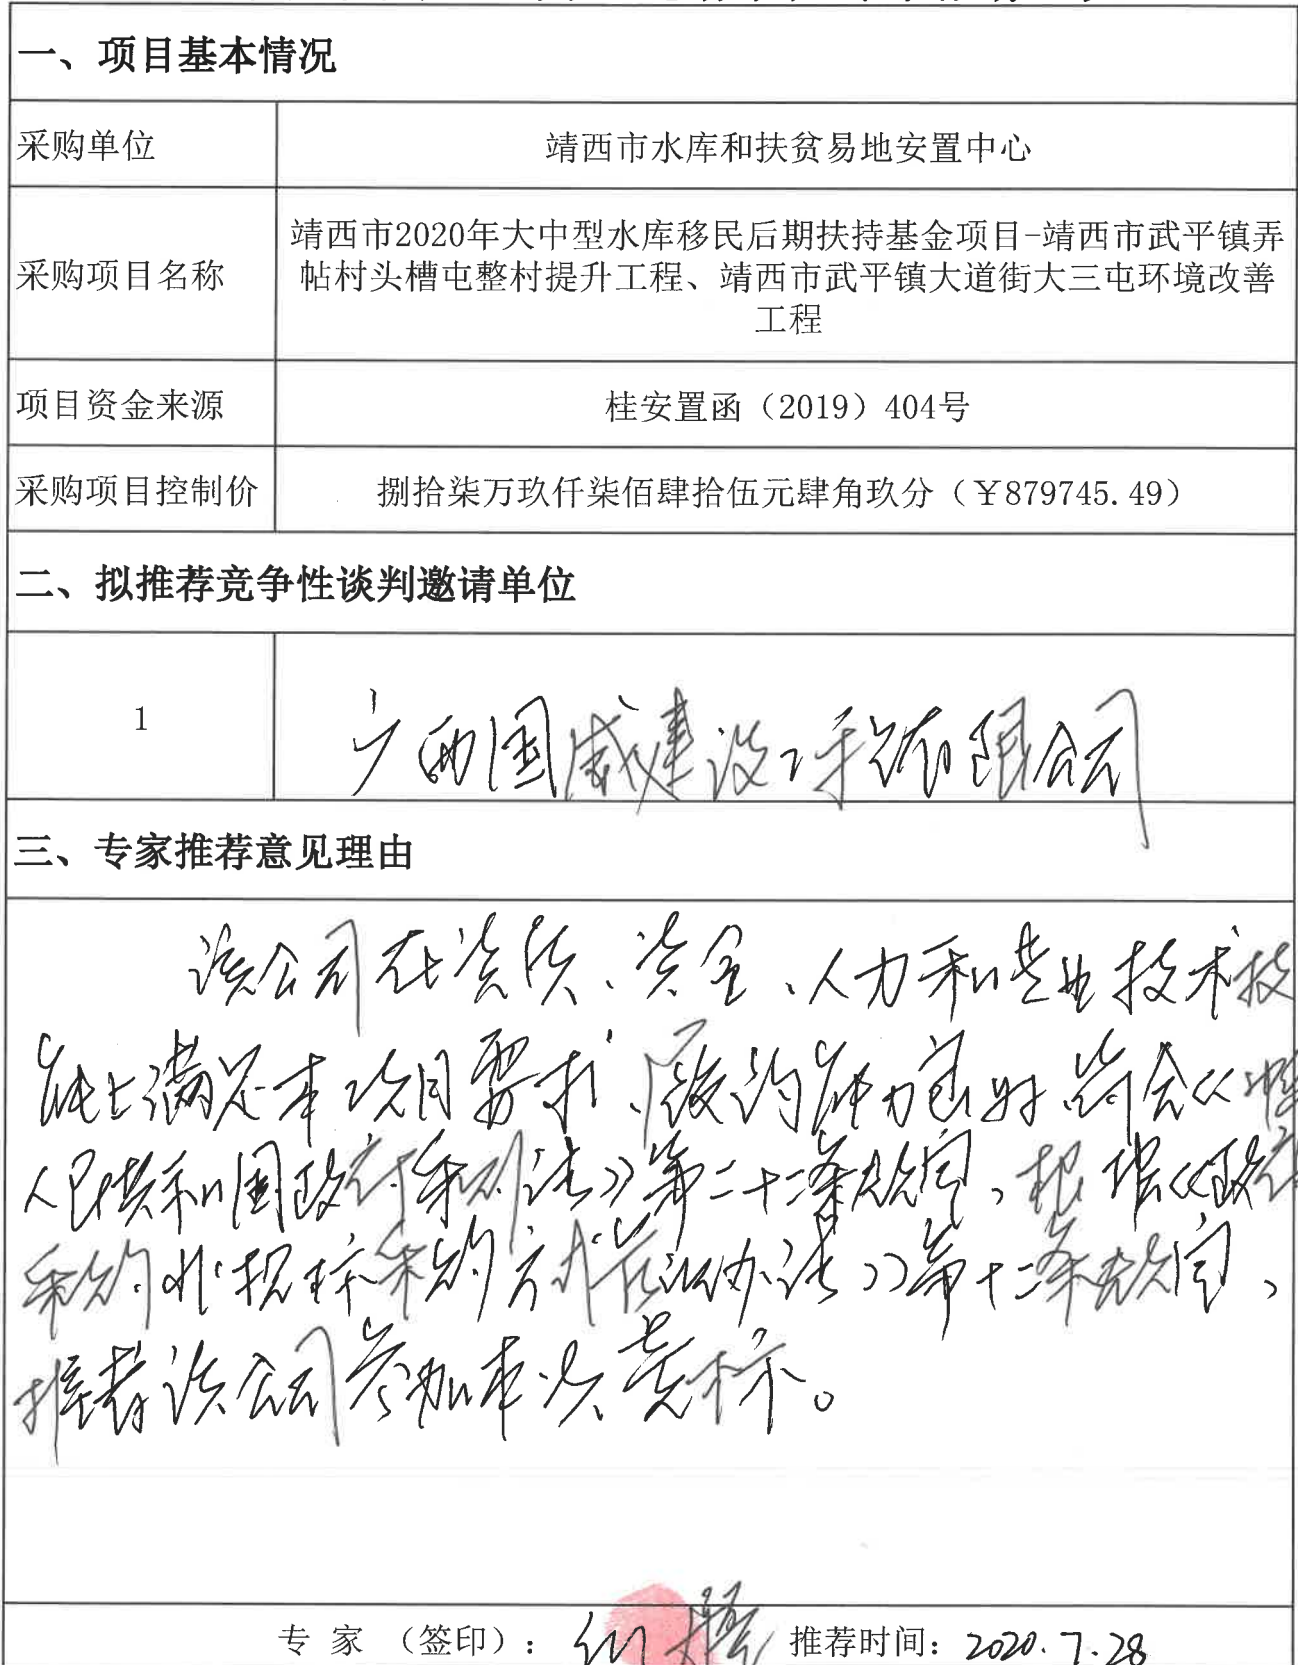 一、项目基本情况
采购单位
靖西市水库和扶贫易地安置中心
采购项目名称
靖西市2020年大中型水库移民后期扶持基金项目-靖西市武平镇弄
帖村头槽屯整村提升工程、靖西市武平镇大道街大三屯环境改善
工程
项目资金来源
桂安置函（2019）404号
采购项目控制价
捌拾柒万玖仟柒佰肆拾伍元肆角玖分（￥879745.49）
二、拟推荐竞争性谈判邀请单位
1
广西国威建设工程有限公司
三、专家推荐意见理由
该公司在资质、资金、人力和专业技术技
能上满足本项目要求、履约能力良好，符合《中华
人民共和国政府采购法》第二十二条规定，根据《政府
采购非招标采购方式管理办法》第十二条规定，
推荐该公司参加本次竞标。
专 家 （签印）：
推荐时间：2020.7.28